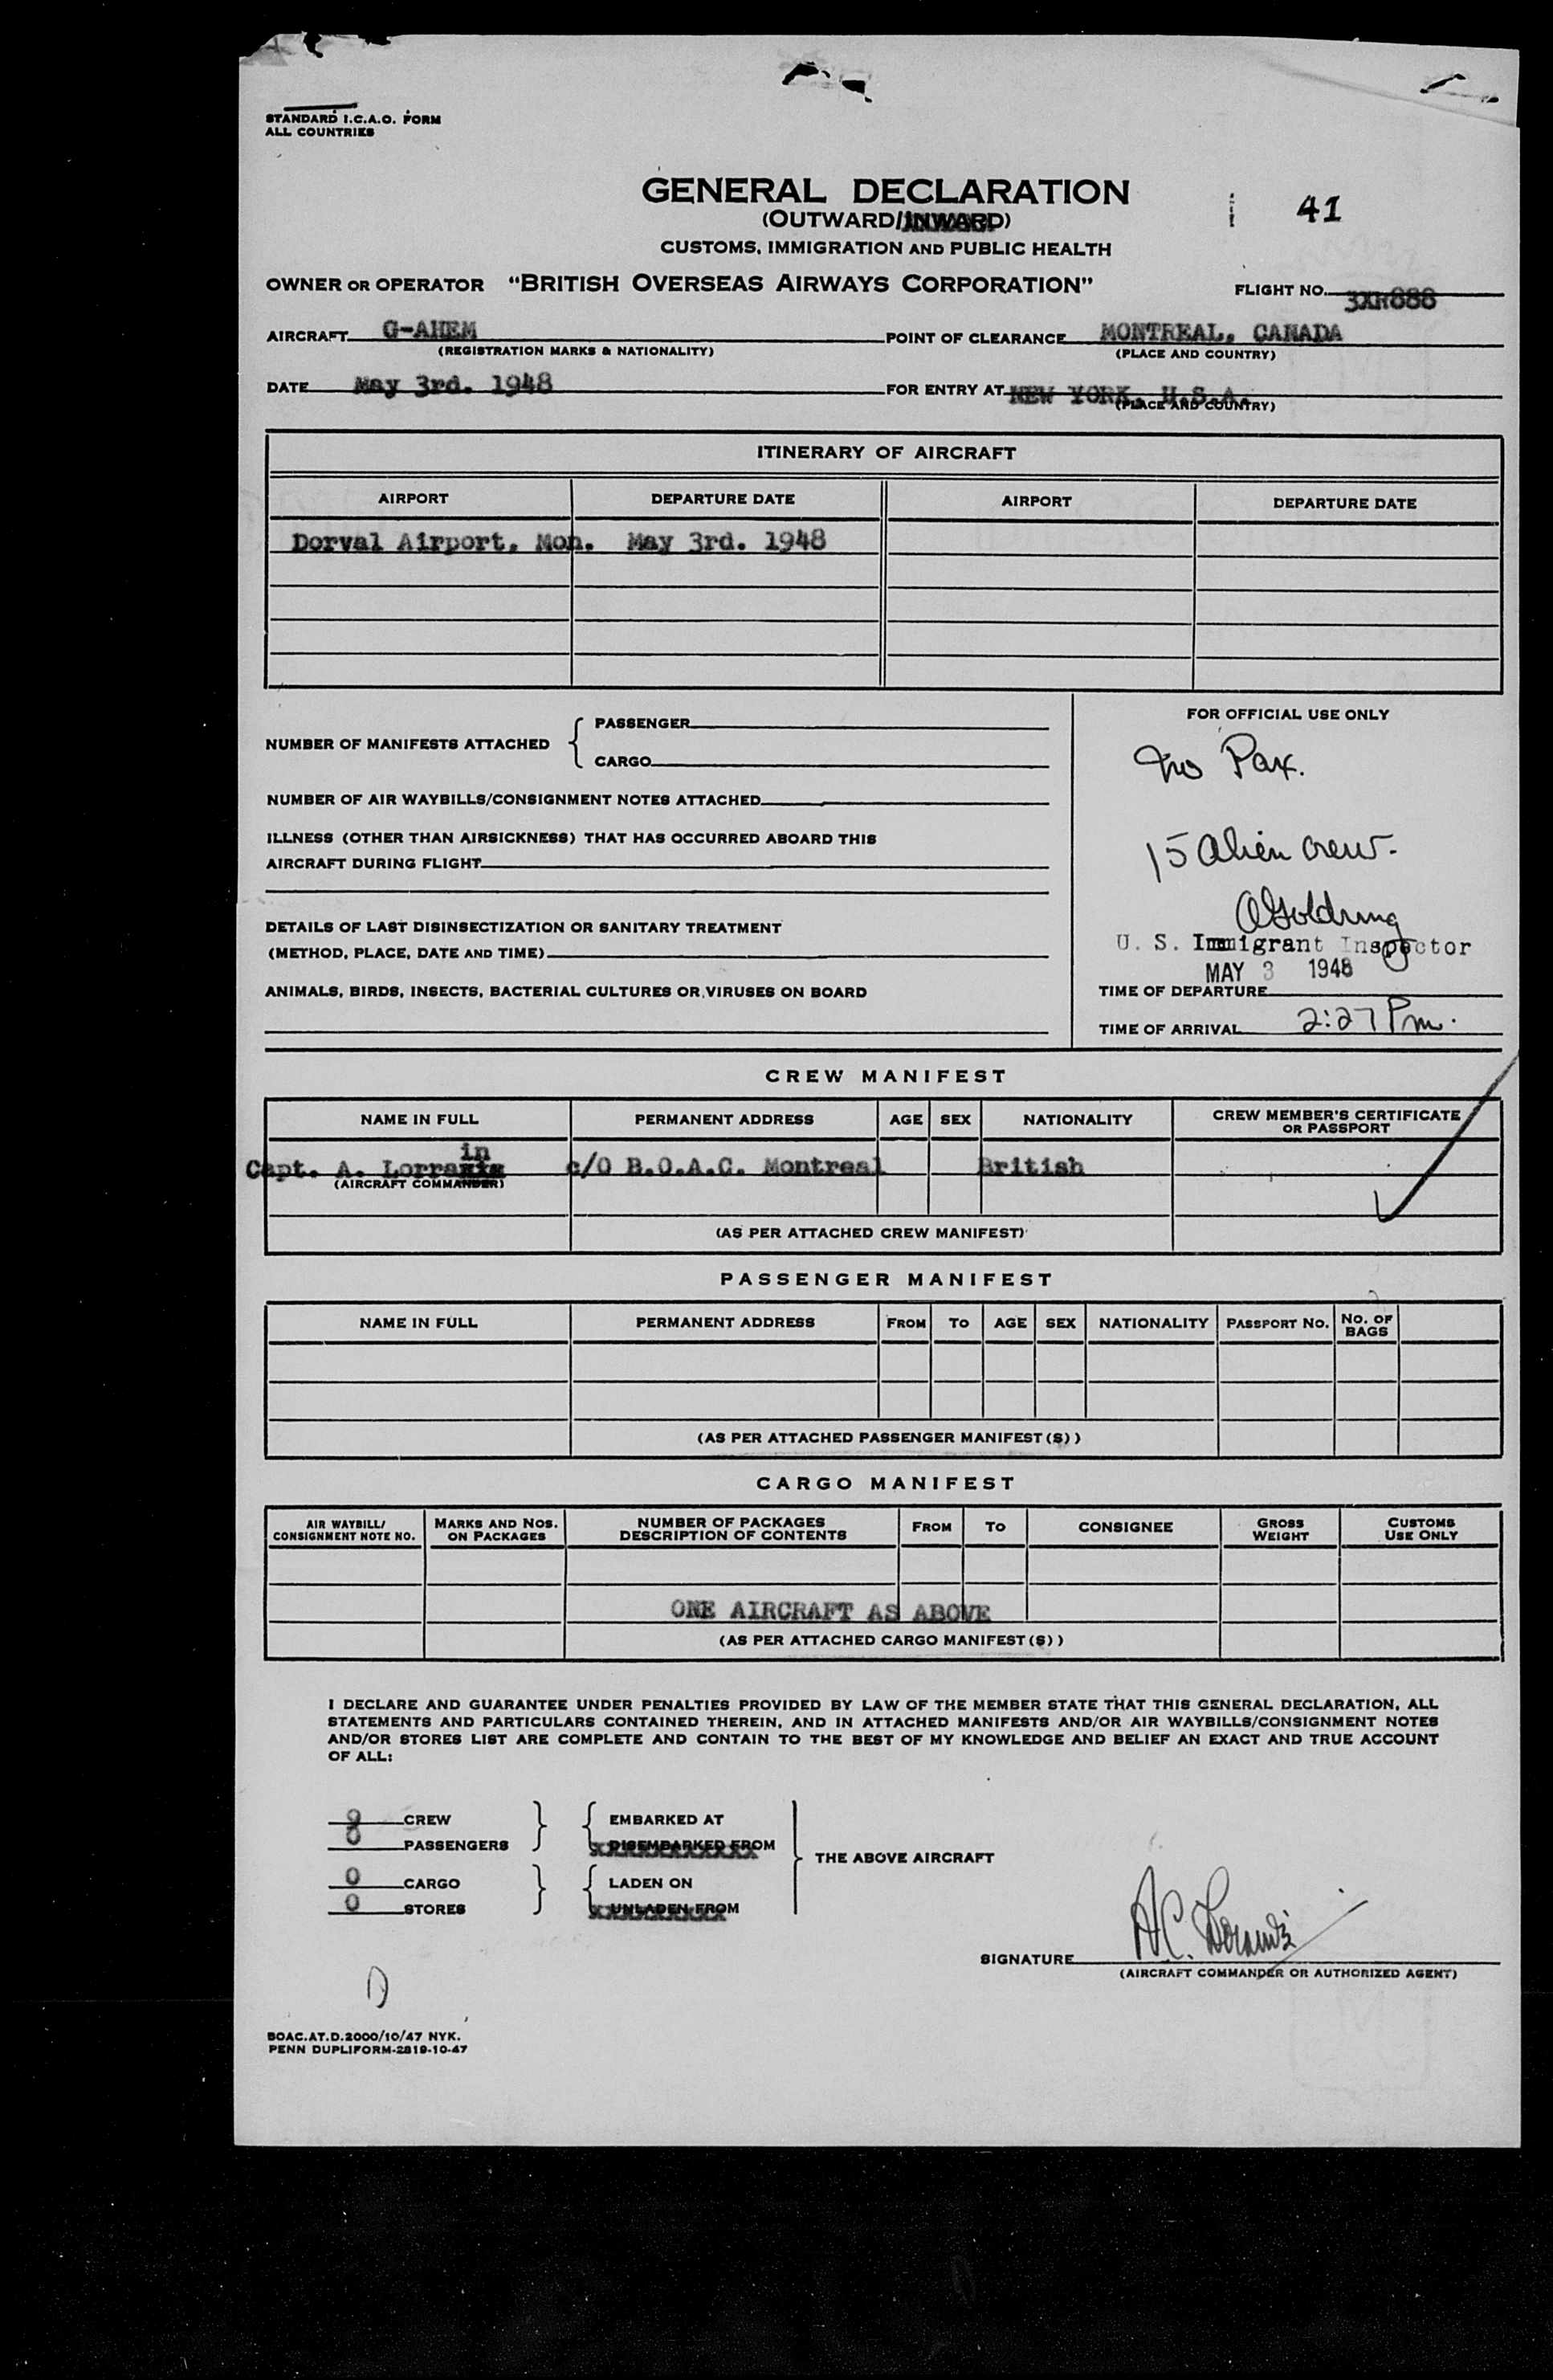 STANDARD I.C.A.O. FORM
ALL COUNTRIES
GENERAL DECLARATION
(OUTWARD/INWARD)
41
CUSTOMS, IMMIGRATION AND PUBLIC HEALTH
OWNER OR OPERATOR "BRITISH OVERSEAS AIRWAYS CORPORATION"
FLIGHT NO. 3XR888
AIRCRAFT G-AHEM POINT OF CLEARANCE MONTREAL, CANADA
(REGISTRATION MARKS & NATIONALITY) (PLACE AND COUNTRY)
DATE May 3rd. 1948 FOR ENTRY AT NEW YORK, U.S.A.
(PLACE AND COUNTRY)
ITINERARY OF AIRCRAFT
AIRPORT DEPARTURE DATE AIRPORT DEPARTURE DATE
Dorval Airport, Mon. May 3rd. 1948
FOR OFFICIAL USE ONLY
NUMBER OF MANIFESTS ATTACHED { PASSENGER
CARGO
No Pax.
NUMBER OF AIR WAYBILLS/CONSIGNMENT NOTES ATTACHED
ILLNESS (OTHER THAN AIRSICKNESS) THAT HAS OCCURRED ABOARD THIS
AIRCRAFT DURING FLIGHT
15 alien crew.
DETAILS OF LAST DISINSECTIZATION OR SANITARY TREATMENT
(METHOD, PLACE, DATE AND TIME)
Goldring
U. S. Immigrant Inspector
MAY 3 1948
ANIMALS, BIRDS, INSECTS, BACTERIAL CULTURES OR VIRUSES ON BOARD
TIME OF DEPARTURE
TIME OF ARRIVAL 2:27 Pm.
CREW MANIFEST
NAME IN FULL PERMANENT ADDRESS AGE SEX NATIONALITY CREW MEMBER'S CERTIFICATE
OR PASSPORT
in
Capt. A. Lorra c/O B.O.A.C. Montreal British
(AIRCRAFT COMMANDER)
(AS PER ATTACHED CREW MANIFEST)
PASSENGER MANIFEST
NAME IN FULL PERMANENT ADDRESS FROM TO AGE SEX NATIONALITY PASSPORT No. No. OF
BAGS
(AS PER ATTACHED PASSENGER MANIFEST(S))
CARGO MANIFEST
AIR WAYBILL/ MARKS AND NOS. NUMBER OF PACKAGES FROM TO CONSIGNEE GROSS CUSTOMS
CONSIGNMENT NOTE NO. ON PACKAGES DESCRIPTION OF CONTENTS WEIGHT USE ONLY
ONE AIRCRAFT AS ABOVE
(AS PER ATTACHED CARGO MANIFEST(S))
I DECLARE AND GUARANTEE UNDER PENALTIES PROVIDED BY LAW OF THE MEMBER STATE THAT THIS GENERAL DECLARATION, ALL
STATEMENTS AND PARTICULARS CONTAINED THEREIN, AND IN ATTACHED MANIFESTS AND/OR AIR WAYBILLS/CONSIGNMENT NOTES
AND/OR STORES LIST ARE COMPLETE AND CONTAIN TO THE BEST OF MY KNOWLEDGE AND BELIEF AN EXACT AND TRUE ACCOUNT
OF ALL:
9 CREW EMBARKED AT
0 PASSENGERS DISEMBARKED FROM
THE ABOVE AIRCRAFT
0 CARGO LADEN ON
0 STORES UNLADEN FROM
SIGNATURE
(AIRCRAFT COMMANDER OR AUTHORIZED AGENT)
BOAC.AT.D.2000/10/47 NYK.
PENN DUPLIFORM-2819-10-47